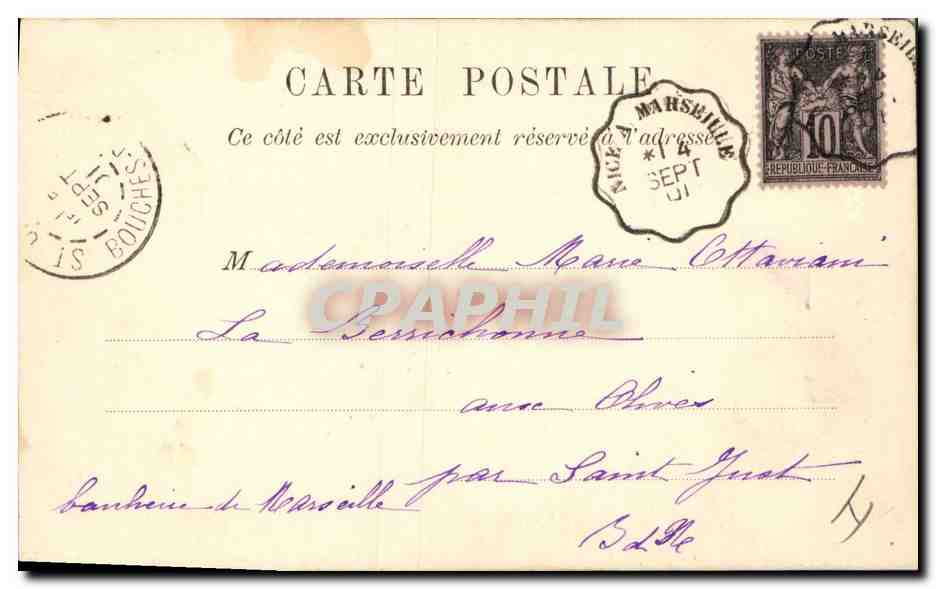 CARTE POSTALE
Ce côté est exclusivement réservé à l'adresse
POSTE
10
REPUBLIQUE FRANCAISE
MARSEILLE
NICE A MARSEILLE
*1 4
SEPT
01
SEPT
BOUCHES
Mademoiselle Marie Ottaviani
CPAPHIL
La Berrichonne
aux Olives
par Saint Just
banlieue de Marseille
B d Rh